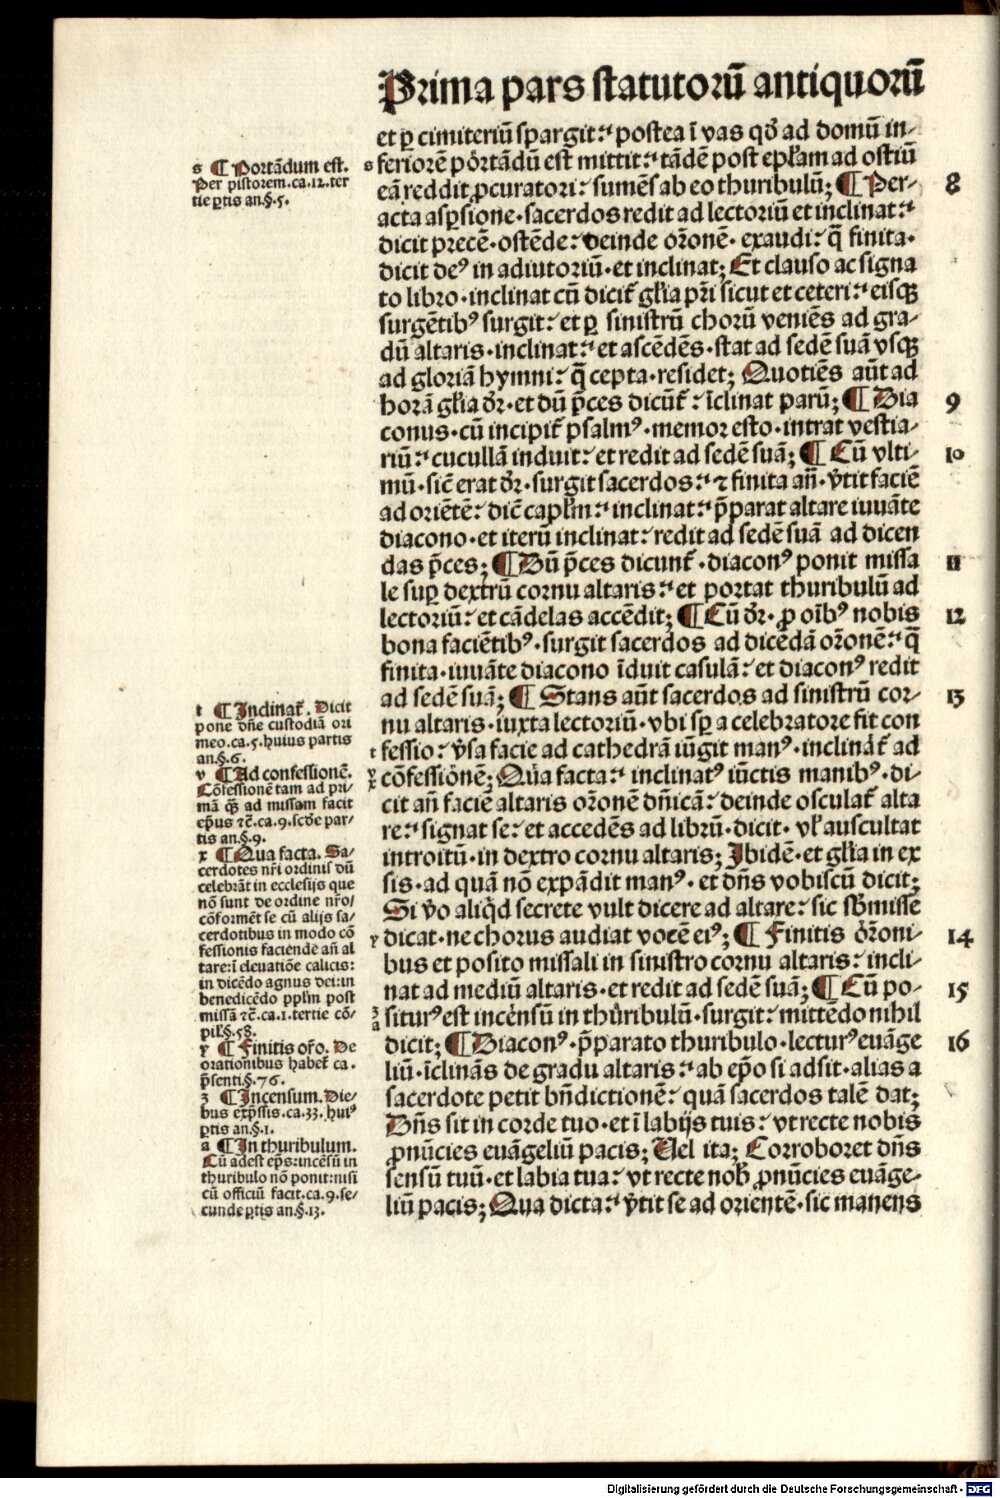 Prima pars statutorū antiquorū
et ꝑ cimiteriū spargit: postea ī vas qð ad domū in-
feriorē pòrtādū est mittit: tādē post epłam ad ostiū
eā reddit ꝓcuratori: sumēs ab eo thuribulū; ¶ Per-
acta asꝑsione·sacerdos redit ad lectoriū et inclinat:
dicit precē·ostēde: deinde or̄onē· exaudi: q̄ finita·
dicit deꝰ in adiutoriū·et inclinat; Et clauso ac signa
to libro·inclinat cū dicit̄ gl̄ia pr̄i sicut et ceteri: eisqꝫ
surgētibꝰ surgit: et ꝑ sinistrū chorū veniēs ad gra-
dū altaris·inclinat: et ascēdēs·stat ad sedē suā vsqꝫ
ad gloriā hymni: q̄ cepta·residet; Quotiēs aūt ad
horā gl̄ia dr̄·et dū p̄ces dicūt̄: īclinat parū; ¶ Dia
conus·cū incipit̄ psalmꝰ·memor esto·intrat vestia-
riū: cucullā induit: et redit ad sedē suā; ¶ Cū vlti-
mū·sic̄ erat dr̄·surgit sacerdos: ⁊ finita an̄·v̓tit faciē
ad oriētē: dic̄ capl̄m: inclinat: p̄parat altare iuuāte
diacono·et iterū inclinat: redit ad sedē suā ad dicen
das p̄ces; ¶ Dū p̄ces dicunt̄·diaconꝰ ponit missa
le suꝑ dextrū cornu altaris: et portat thuribulū ad
lectoriū: et cādelas accēdit; ¶ Cū dr̄·ꝓ oīb̄ꝰ nobis
bona faciētibꝰ·surgit sacerdos ad dicēdā or̄onē: q̄
finita·iuuāte diacono īduit casulā: et diaconꝰ redit
ad sedē suā; ¶ Stans aūt sacerdos ad sinistrū cor-
nu altaris·iuxta lectoriū·vbi sꝑ a celebratore fit con
fessio: v̓sa facie ad cathedrā iūgit manꝰ·inclināt̄ ad
cōfessiònē; Qua facta: inclinatꝰ iūctis manibꝰ·di-
cit an̄ faciē altaris or̄onē dn̄icā: deinde osculat̄ alta
re: signat se: et accedēs ad librū·dicit· vł auscultat
introitū·in dextro cornu altaris; Ibidē·et gl̄ia in ex
sis·ad quā nō expādit manꝰ·et dn̄s vobiscū dicit;
Si v̓o aliq̇d secrete vult dicere ad altare: sic sb̄misse
dicat·ne chorus audiat vocē eiꝰ; ¶ Finitis ór̄oni-
bus et posito missali in sinistro cornu altaris: incli-
nat ad mediū altaris·et redit ad sedē suā; ¶ Cū po-
siturꝰ est incénsū in thùribulū·surgit: mittēdo nihil
dicit; ¶ Diaconꝰ·p̄parato thuribulo·lecturꝰ euāge
liū·īclināns de gradu altaris: ab ep̄o si adsit·alias a
sacerdote petit bn̄dictionē: quā sacerdos talē dat;
Dn̄s sit in corde tuo·et ī labijs tuis: vt recte nobis
ꝓnūcies euāgeliū pacis; Uel ita; Corroboret dn̄s
sensū tuū·et labia tua: vt recte nob̄ ꝓnūcies euāge-
liū pacis; Qua dicta: v̓tit se ad orientē·sic manens
8
9
10
11
12
13
14
15
16
s ¶ Portādum est.
Per pistorem.ca.12.ter
tie ꝑtis an.§.5.
t ¶ Inclinat̄. Dicit
pone dn̄e custodiā ori
meo.ca.5.huius partis
an.§.6.
v ¶ Ad confessionē.
Cōfessionē tam ad pri-
mā qꝫ ad missam facit
ep̄us ⁊c̄.ca.9.scd̄e par-
tis an.§.9.
x ¶ Qua facta. Sa-
cerdotes nr̄i ordinis dū
celebrāt in ecclesijs que
nō sunt de ordine nr̄o/
cōformēt se cū alijs sa-
cerdotibus in modo cō
fessionis faciende an̄ al
tare: ī eleuatiōe calicis:
in dicēdo agnus dei: in
benedicēdo pplm̄ post
missā ⁊c̄.ca.1.tertie cō-
pil̄.§.58.
y ¶ Finitis or̄o. De
orationibus habet̄ ca.
p̄senti.§.76.
z ¶ Incensum. Die-
bus exp̄ssis.ca.33.huiꝰ
ꝑtis an.§.1.
a ¶ In thuribulum.
Cū adest ep̄s: incēsū in
thuribulo nō ponit: nisi
cū officiū facit.ca.9.se-
cunde ꝑtis an.§.13.
s
t
v
x
y
z
a
Digitalisierung gefördert durch die Deutsche Forschungsgemeinschaft · DFG